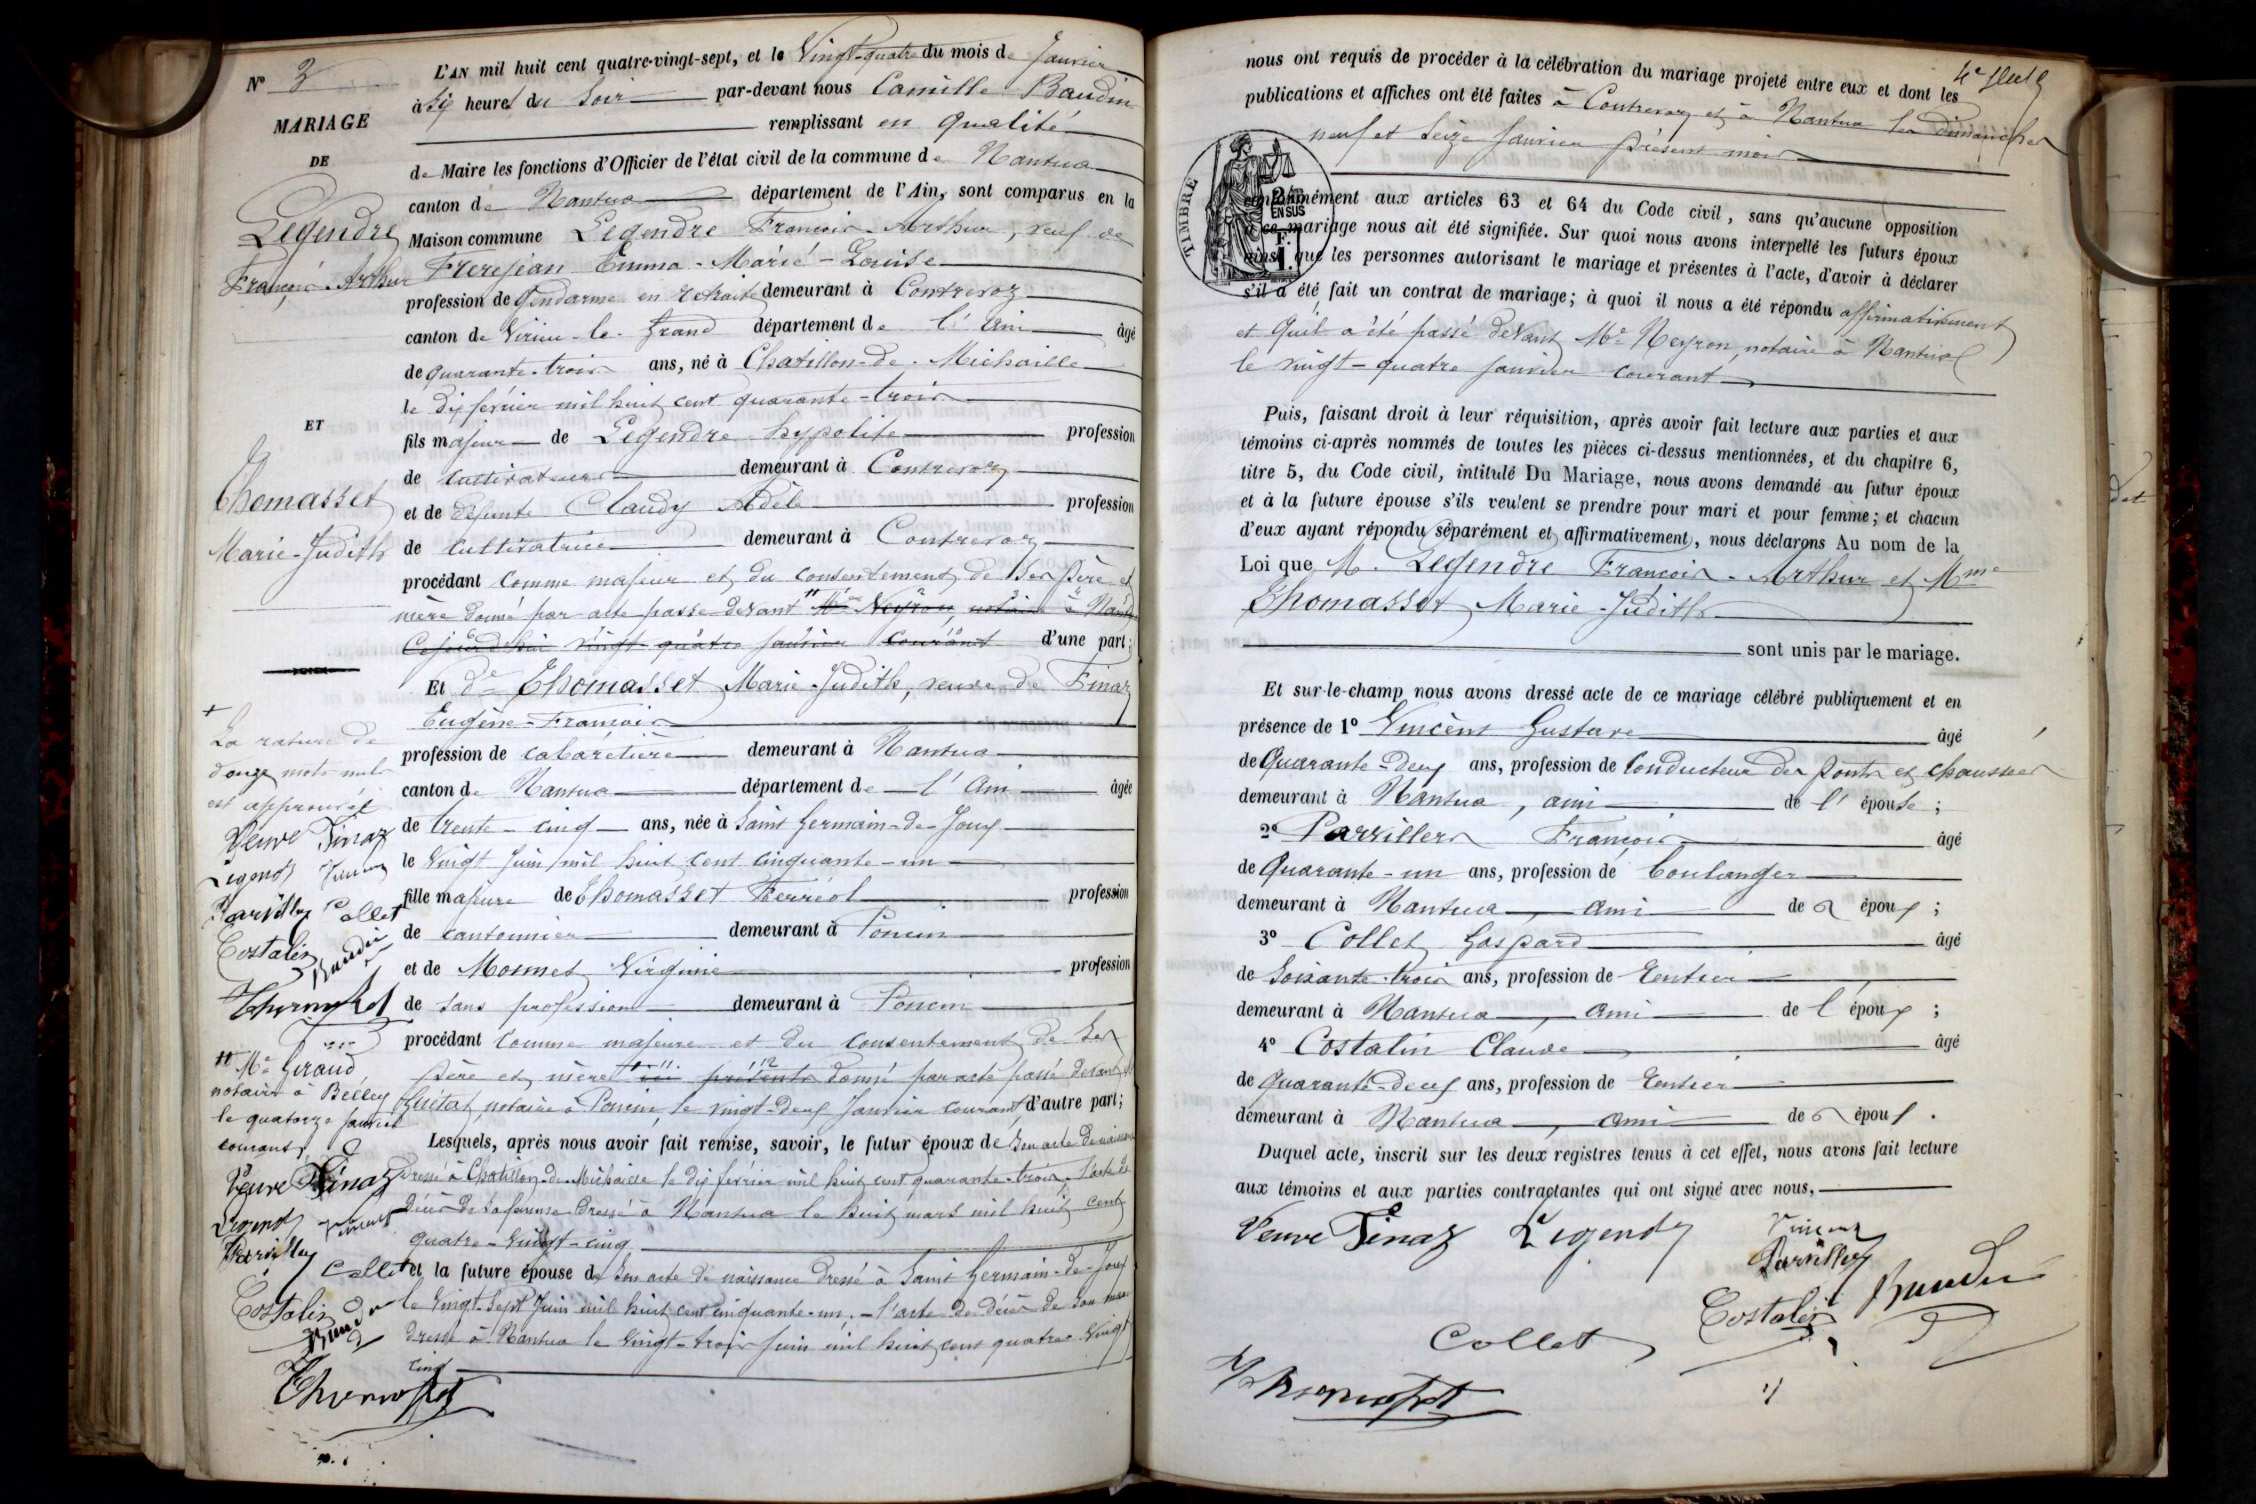 N° 3
MARIAGE
DE
Legendre
François-Arthur
ET
Thomasset
Marie-Judith
L'AN mil huit cent quatre-vingt-sept, et le Vingt-quatre du mois de Janvier
à six heures du Soir par-devant nous Camille Baudin
remplissant en qualité
de Maire les fonctions d'Officier de l'état civil de la commune de Nantua
canton de Nantua département de l'Ain, sont comparus en la
Maison commune Legendre François-Arthur, veuf de
Frerejean Emma-Marie-Louise
profession de Gendarme en retraite demeurant à Contrevoz
canton de Virieu-le-Grand département de l'Ain âgé
de quarante-trois ans, né à Chatillon-de-Michaille
le dix février mil huit cent quarante-trois
fils majeur de Legendre hypolite profession
de cultivateur demeurant à Contrevoz
et de défunte Claudy Adèle profession
de cultivatrice demeurant à Contrevoz
procédant comme majeur et du consentement de ses père et
mère donné par acte passé devant " Me Neyron, notaire à Nantua
Cejourd'hui vingt-quatre janvier courant d'une part;
Et de Thomasset Marie-Judith, veuve de Finaz
Eugène-François
profession de cabaretière demeurant à Nantua
canton de Nantua département de l'Ain âgée
de trente-cinq ans, née à Saint Germain-de-Joux
le Vingt Juin mil huit cent cinquante-un
fille majeure de Thomasset Ferréol profession
de cantonnier demeurant à Poncin
et de Mosmet Virginie profession
de sans profession demeurant à Poncin
procédant comme majeure et du consentement de ses
père et mère ici présents donné par acte passé devant Me
Guétat, notaire à Poncin le vingt-deux Janvier courant d'autre part;
Lesquels, après nous avoir fait remise, savoir, le futur époux de son acte de naissance
dressé à Chatillon-de-Michaille le dix février mil huit cent quarante-trois, l'acte de
décès de sa femme dressé à Nantua le huit mars mil huit cent
quatre-vingt-cinq
et la future épouse de son acte de naissance dressé à Saint Germain-de-Joux
le vingt-sept Juin mil huit cent cinquante-un.- l'acte de décès de son mari
dressé à Nantua le vingt-trois juin mil huit cent quatre-vingt
cinq
+
La rature de
douze mots nuls
est approuvée
Veuve Finaz
Legendre Vincent
Parvillers Collet
Costalin
Baudin
Thomasset
" Me Giraud
notaire à Belley
le quatorze Janvier
courant
Veuve Finaz
Legendre Vincent
Parvillers
Collet
Costalin
Baudin
Thomasset
4e feuillet
nous ont requis de procéder à la célébration du mariage projeté entre eux et dont les
publications et affiches ont été faites à Contrevoz et à Nantua les dimanches
neuf et seize janvier présent mois
TIMBRE
2/10
EN SUS
F.
1.
conformément aux articles 63 et 64 du Code civil, sans qu'aucune opposition
à ce mariage nous ait été signifiée. Sur quoi nous avons interpellé les futurs époux
ainsi que les personnes autorisant le mariage et présentes à l'acte, d'avoir à déclarer
s'il a été fait un contrat de mariage; à quoi il nous a été répondu affirmativement
et qu'il a été passé devant Me Neyron, notaire à Nantua
le vingt-quatre janvier courant
Puis, faisant droit à leur réquisition, après avoir fait lecture aux parties et aux
témoins ci-après nommés de toutes les pièces ci-dessus mentionnées, et du chapitre 6,
titre 5, du Code civil, intitulé Du Mariage, nous avons demandé au futur époux
et à la future épouse s'ils veulent se prendre pour mari et pour femme; et chacun
d'eux ayant répondu séparément et affirmativement, nous déclarons Au nom de la
Loi que M. Legendre François-Arthur et Mme
Thomasset Marie-Judith
sont unis par le mariage.
Et sur-le-champ nous avons dressé acte de ce mariage célébré publiquement et en
présence de 1° Vincent Gustave âgé
de Quarante-deux ans, profession de Conducteur des ponts et chaussées
demeurant à Nantua, ami de l'épouse;
2° Parvillers François âgé
de Quarante-un ans, profession de boulanger
demeurant à Nantua, ami de l'époux;
3° Collet Gaspard âgé
de Soixante-trois ans, profession de Rentier
demeurant à Nantua, ami de l'époux;
4° Costalin Claude âgé
de quarante-deux ans, profession de Rentier
demeurant à Nantua, ami de l'époux.
Duquel acte, inscrit sur les deux registres tenus à cet effet, nous avons fait lecture
aux témoins et aux parties contractantes qui ont signé avec nous,
Veuve Finaz Legendre Vincent
Parvillers
Costalin Baudin
Collet
Thomasset